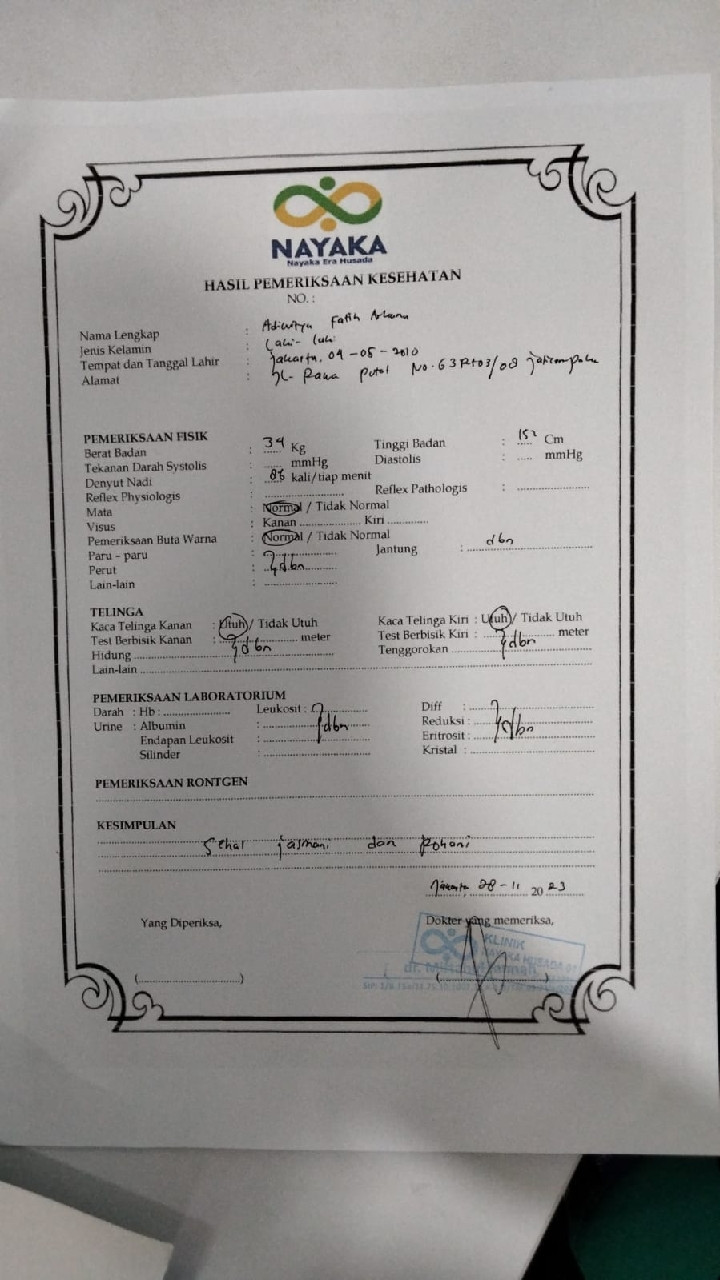 NAYAKA
Nayaka Era Husada
HASIL PEMERIKSAAN KESEHATAN
NO. :
Nama Lengkap : Fatih
Jenis Kelamin : Laki-laki
Tempat dan Tanggal Lahir : Jakarta, 04-05-2010
Alamat : Jl. Rawa No. 63 Rt 03/08
PEMERIKSAAN FISIK
Berat Badan : 34 Kg Tinggi Badan : 152 Cm
Tekanan Darah Systolis : ..... mmHg Diastolis : ..... mmHg
Denyut Nadi : kali/tiap menit
Reflex Physiologis : ..... Reflex Pathologis : .....
Mata : Normal / Tidak Normal
Visus : Kanan ..... Kiri .....
Pemeriksaan Buta Warna : Normal / Tidak Normal
Paru - paru : Jantung : dbn
Perut : dbn
Lain-lain : .....
TELINGA
Kaca Telinga Kanan : Utuh / Tidak Utuh Kaca Telinga Kiri : Utuh / Tidak Utuh
Test Berbisik Kanan : ..... meter Test Berbisik Kiri : ..... meter
Hidung dbn Tenggorokan dbn
Lain-lain .....
PEMERIKSAAN LABORATORIUM
Darah : Hb : ..... Leukosit : Diff :
Urine : Albumin : dbn Reduksi : dbn
Endapan Leukosit : ..... Eritrosit :
Silinder : ..... Kristal : .....
PEMERIKSAAN RONTGEN
KESIMPULAN
Sehat jasmani dan Rohani
Jakarta, 28-11 2023
Yang Diperiksa, Dokter yang memeriksa,
KLINIK
NAYAKA HUSADA
dr.
(.....) (.....)